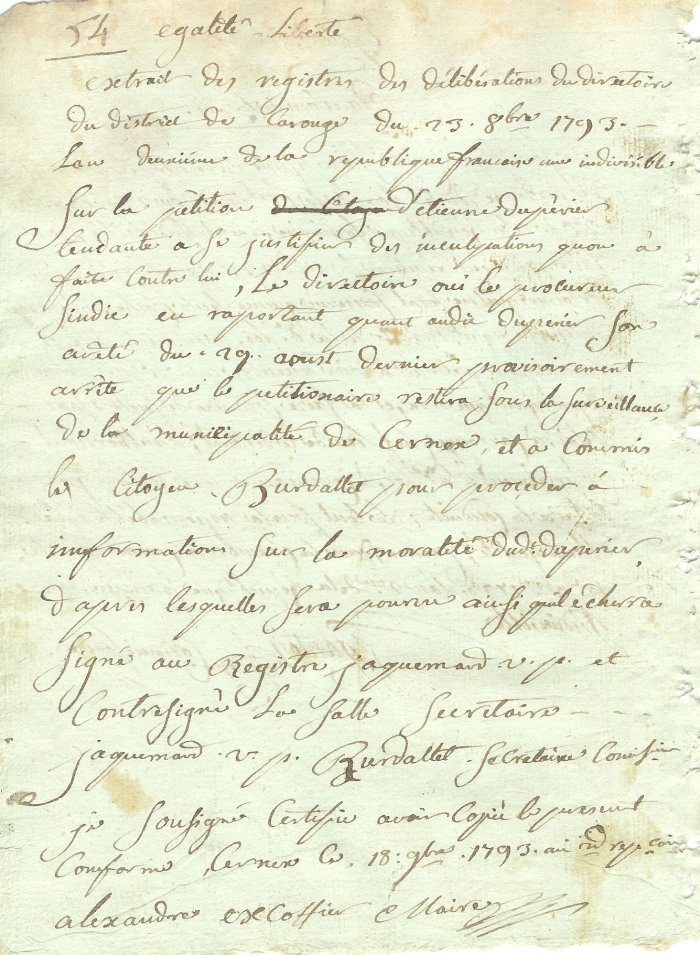 54 egalité Liberté
extrait des registres des délibérations du directoire
du district de Carouge du 23. 8bre 1793. —
Lan deuxieme de la republique francaise une indivisible
Sur la pètition de Citoyen D'etienne Dupèrier
tendante a se justifier des inculpations quon à
faite contre lui, Le directoire oui le procureur
Sindic en raportant quant audit Duperier Son
arrêté du 29. aoust dernier provisoirement
arrête que le petitionaire restera Sous la Surveillance
de la municipalité de Cernex, et a Commis
le Citoyen Burdallet pour proceder à
informations Sur la moralité dudt. duperier
d'apres lesquelles Sera pourvu ainsi quil écherra
Signé au Registre jaquemard v. p. et
Contresigné La Salle Secretaire —
jaquemard v. p. Burdallet Secretaire
je Sousigné Certifie avoir Copié le present
Conforme, Cernex Ce 18: 9bre. 1793. an 2d rep.
alexandre excoffier Maire